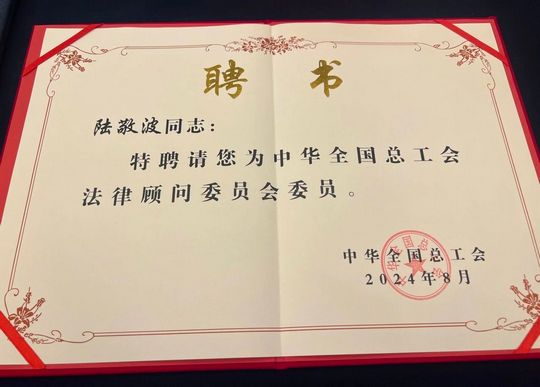 聘 书
陆敬波同志：
特聘请您为中华全国总工会
法律顾问委员会委员。
中华全国总工会
2024年8月